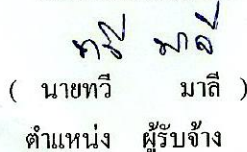 ทวี มาลี
( นายทวี มาลี )
ตำแหน่ง ผู้รับจ้าง